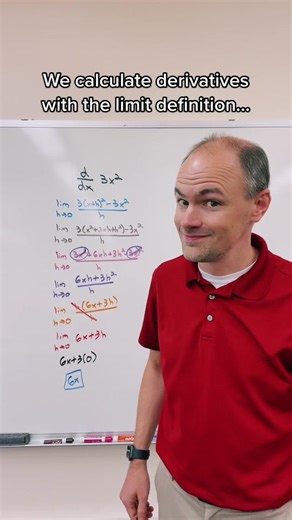 We calculate derivatives
with the limit definition...
d/dx 3x²
lim h→0 3(x+h)²-3x²/h
lim h→0 3(x²+2xh+h²)-3x²/h
lim h→0 3x²+6xh+3h²-3x²/h
lim h→0 6xh+3h²/h
lim h→0 (6x+3h)
lim h→0 6x+3h
6x+3(0)
6x